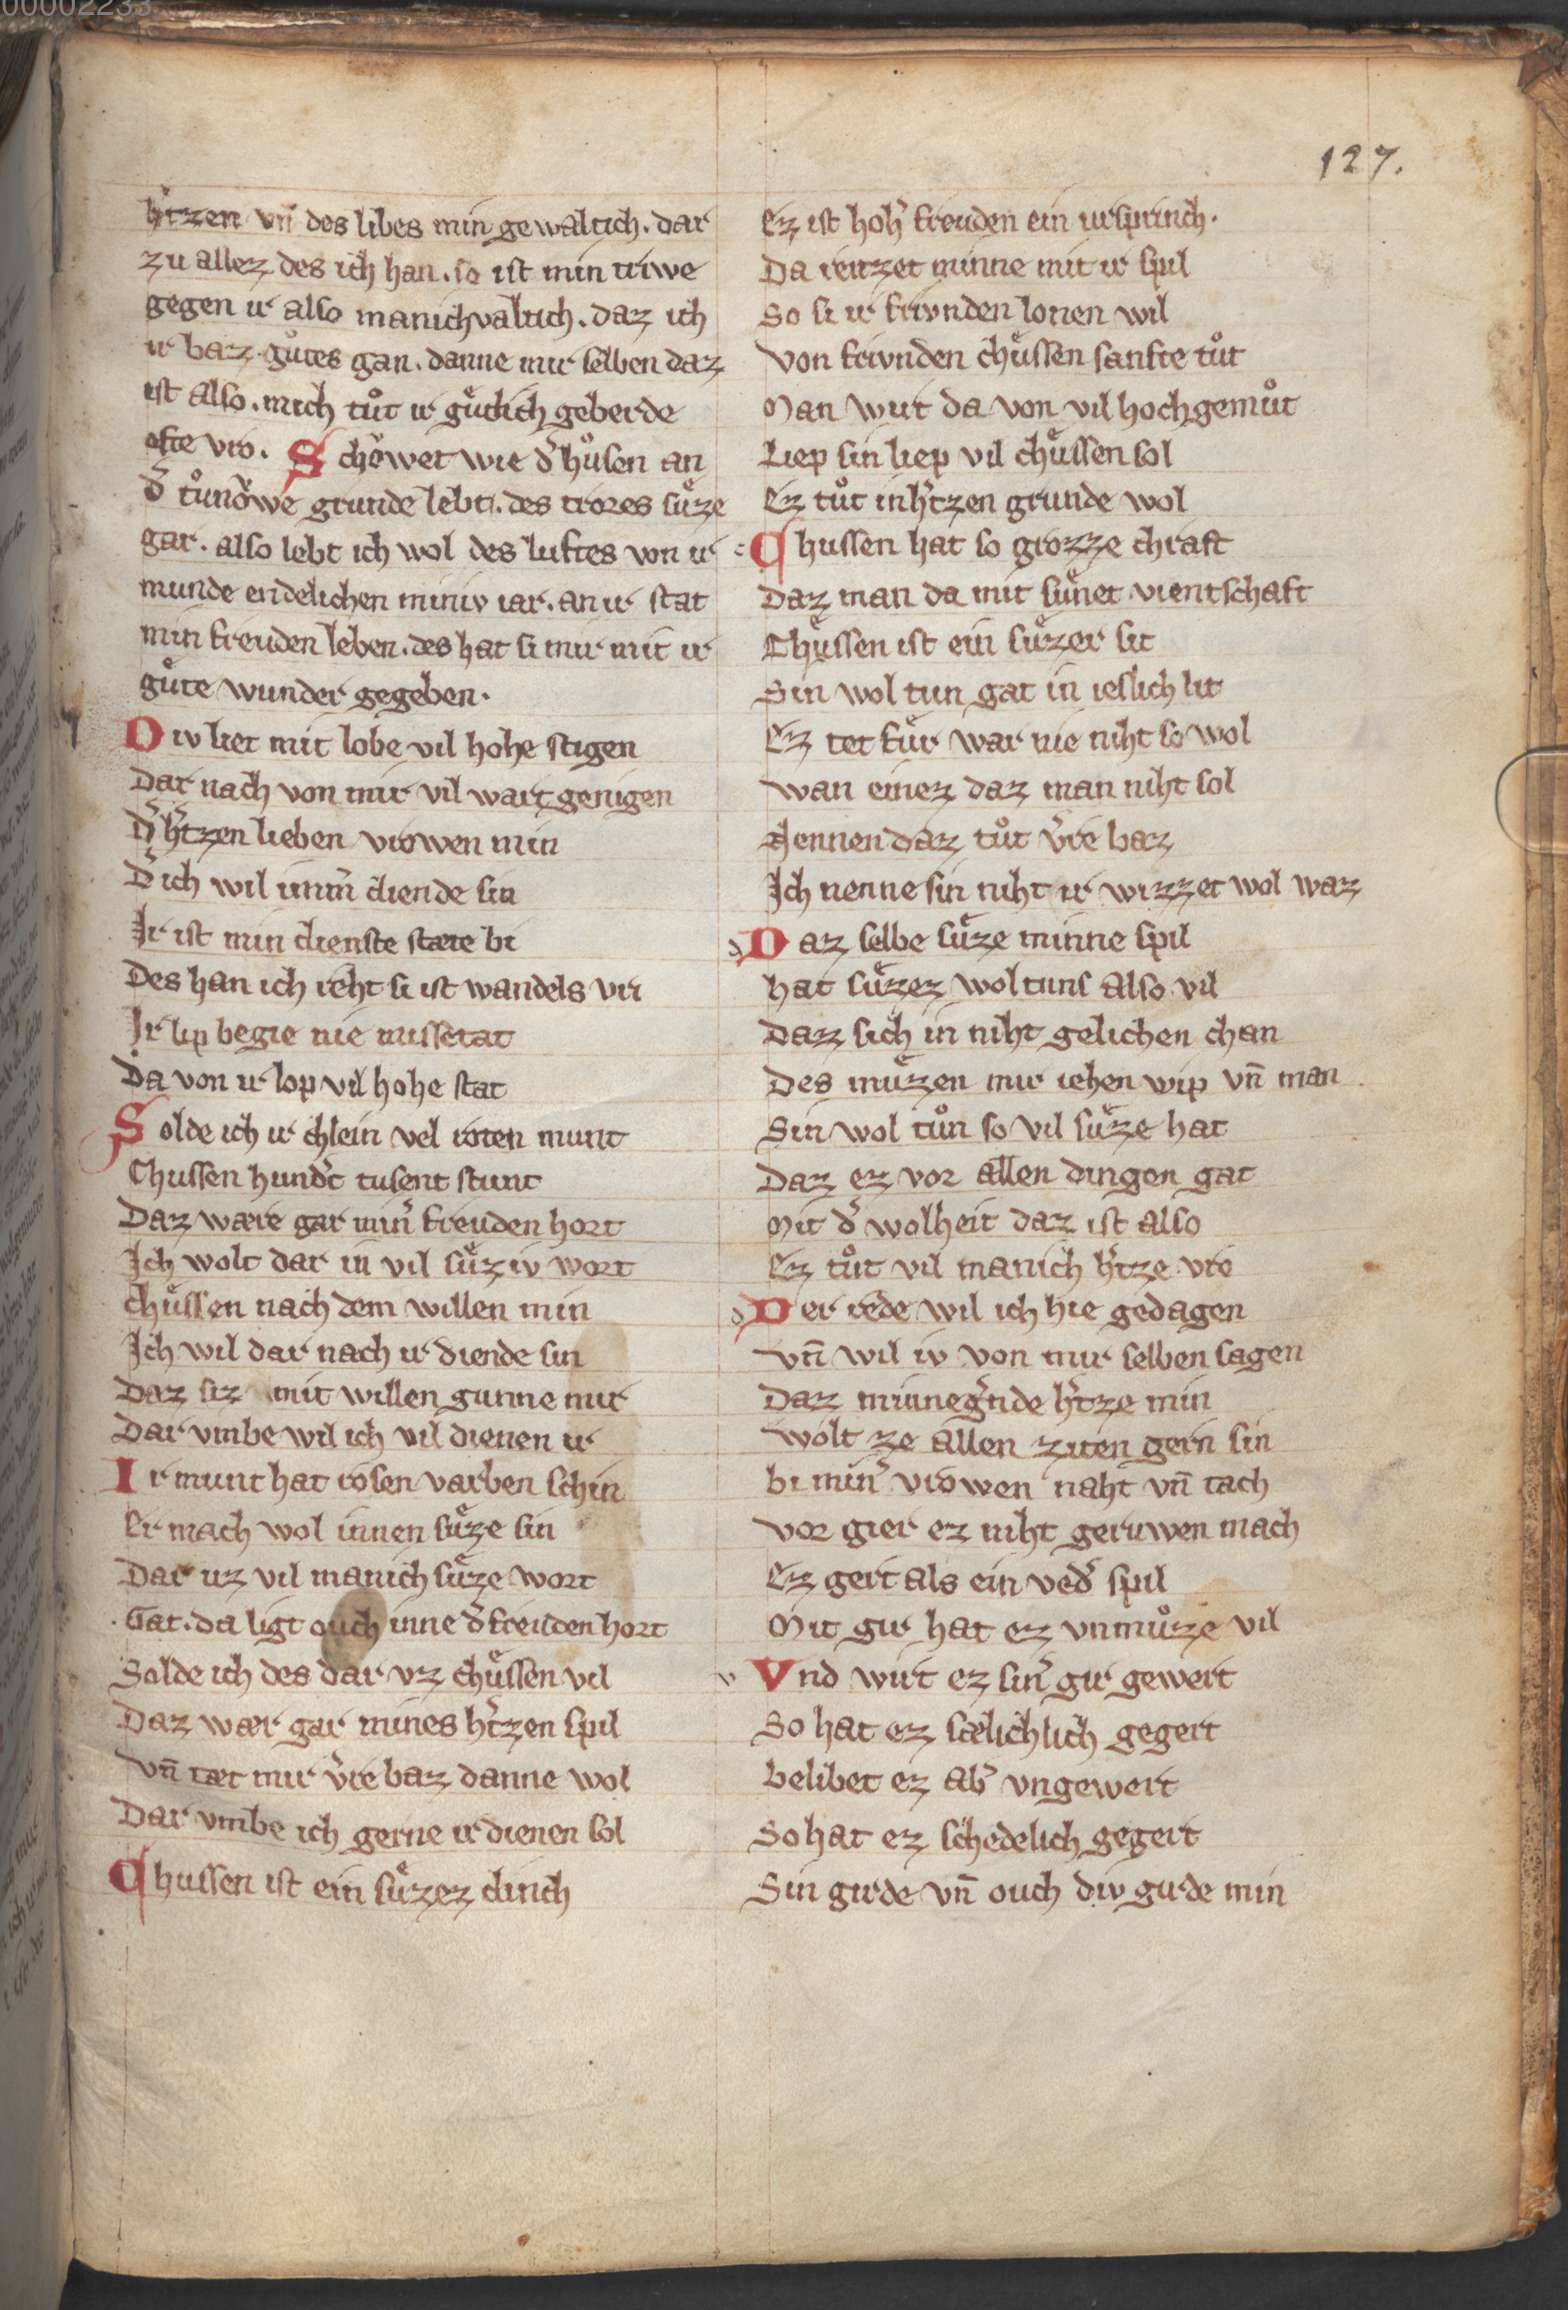 00002233
127.
h᷑tzen vn̄ des libes min gewaltich. dar
zu allez des ich han. so ist min triwe
gegen ir also manichvaltich. daz ich
ir baz gůtes gan. danne mir selben daz
ist also. mich tůt ir gůtlich geberde
ofte vro. Schowet wie d᷑ hůsen an
d᷑ tůnǒwe grunde lebt. des trores sůze
gar. also lebt ich wol des luftes von ir
munde endelichen miniv iar. an ir stat
min freuden leben. des hat si mir mit ir
gůte wunder gegeben.
Div liet mit lobe vil hohe stigen
Dar nach von mir vil wart genigen
D᷑ h᷑tzen lieben vrowen min
D᷑ ich wil imm᷑ diende sin
Ir ist min dienste stæte bi
Des han ich reht si ist wandels vri
Ir lip begie nie missetat
Da von ir lop vil hohe stat
Solde ich ir chlein vel roten munt
Chussen hund᷑t tusent stunt
Daz wære gar min᷑ freuden hort
Ich wolt dar in vil sůziv wort
chůssen nach dem willen min
Ich wil dar nach ir diende sin
Daz siz mit willen gunne mir
Dar vmbe wil ich vil dienen ir
Ir munt hat rosen varben schin
Er mach wol innen sůze sin
Dar uz vil manich sůze wort
Gat. da ligt ouch inne d᷑ freuden hort
Solde ich des dar vz chůssen vil
Daz wær gar mines h᷑tzen spil
vn̄ tæt mir v᷑re baz danne wol
Dar vmbe ich gerne ir dienen sol
Chussen ist ein sůzez dinch
Ez ist hoh᷑ freuden ein ursprinch.
Da reitzet minne mit ir spil
So si ir frivnden lonen wil
von frivnden chůssen sanfte tůt
Man wirt da von vil hochgemůt
Liep sin liep vil chůssen sol
Ez tůt in h᷑tzen grunde wol
Chussen hat so grozze chraft
Daz man da mit sůnet vientschaft
Chůssen ist ein sůzer sit
Sin wol tun gat in ieslich lit
Ez tet fůr war nie niht so wol
wan einez daz man niht sol
Nennen daz tůt v᷑re baz
Ich nenne sin niht ir wizzet wol waz
Daz selbe sůze minne spil
hat sůzez wol tuns also vil
Daz sich in niht gelichen chan
Des můzen mir iehen wip vn̄ man
Sin wol tůn so vil sůze hat
Daz ez vor allen dingen gat
Mit d᷑ wolheit daz ist also
Ez tůt vil manich h᷑tze vro
Der rede wil ich hie gedagen
vn̄ wil iv von mir selben sagen
Daz minneg᷑nde h᷑tze min
wolt ze allen ziten gern sin
bi min᷑ vrowen naht vn̄ tach
vor gier ez niht geruwen mach
Ez gert als ein ved᷑ spil
Mit gir hat ez vnmůze vil
Vnd wirt ez sin᷑ gir gewert
So hat ez sælichlich gegert
belibet ez ab᷑ vngewert
So hat ez schedelich gegert
Sin girde vn̄ ouch div girde min